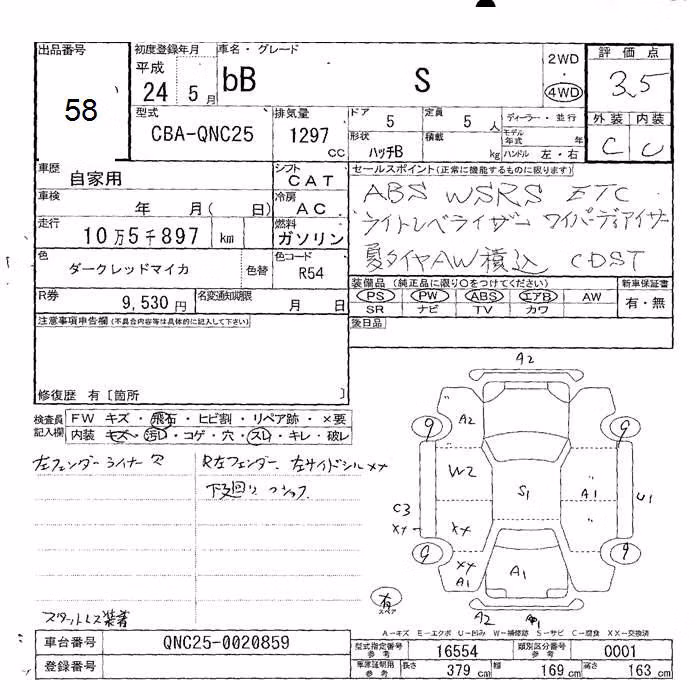 出品番号 初度登録年月 車名・グレード 2WD 評価点
58 平成 24 5月 bB S ・ 4WD 3.5
型式 排気量 ドア 5 定員 5人 ディーラー・並行 外装 内装
CBA-QNC25 1297 CC 形状 ハッチB 積載 kg モデル年式 年 ハンドル 左・右 C C
車歴 自家用 シフト CAT セールスポイント(正常に機能するものに限ります)
車検 年 月( 日) 冷房 AC ABS WSRS ETC
走行 10万5千897 km 燃料 ガソリン ライトレベライザー ワイパーディアイサー
色 ダークレッドマイカ 色替 色コード R54 夏タイヤAW積込 CDST
R券 9,530円 名変通知期限 月 日 装備品(純正品に限り○をつけてください) 新車保証書
PS PW ABS エアB AW 有・無
SR ナビ TV カワ
注意事項申告欄(不具合内容等は具体的に記入して下さい) 後日品
修復歴 有[箇所 ]
検査員記入欄 FW キズ・飛石・ヒビ割・リペア跡・×要
内装 キズ・汚レ・コゲ・穴・スレ・キレ・破レ
左フェンダーライナー穴 R左フェンダー、左サイドシルXX
下廻り
A2
9 A2 9
W2 S1 A1 U1
C3
XY XY
9 XY A1 A1 9
有 スペア
A2
スタットレス装着
A-キズ E-エクボ U-凹み W-補修跡 S-サビ C-腐食 XX-交換済
車台番号 QNC25-0020859 型式指定番号 参考 16554 類別区分番号 参考 0001
登録番号 車庫証明用 参考 長さ 379 cm 幅 169 cm 高さ 163 cm